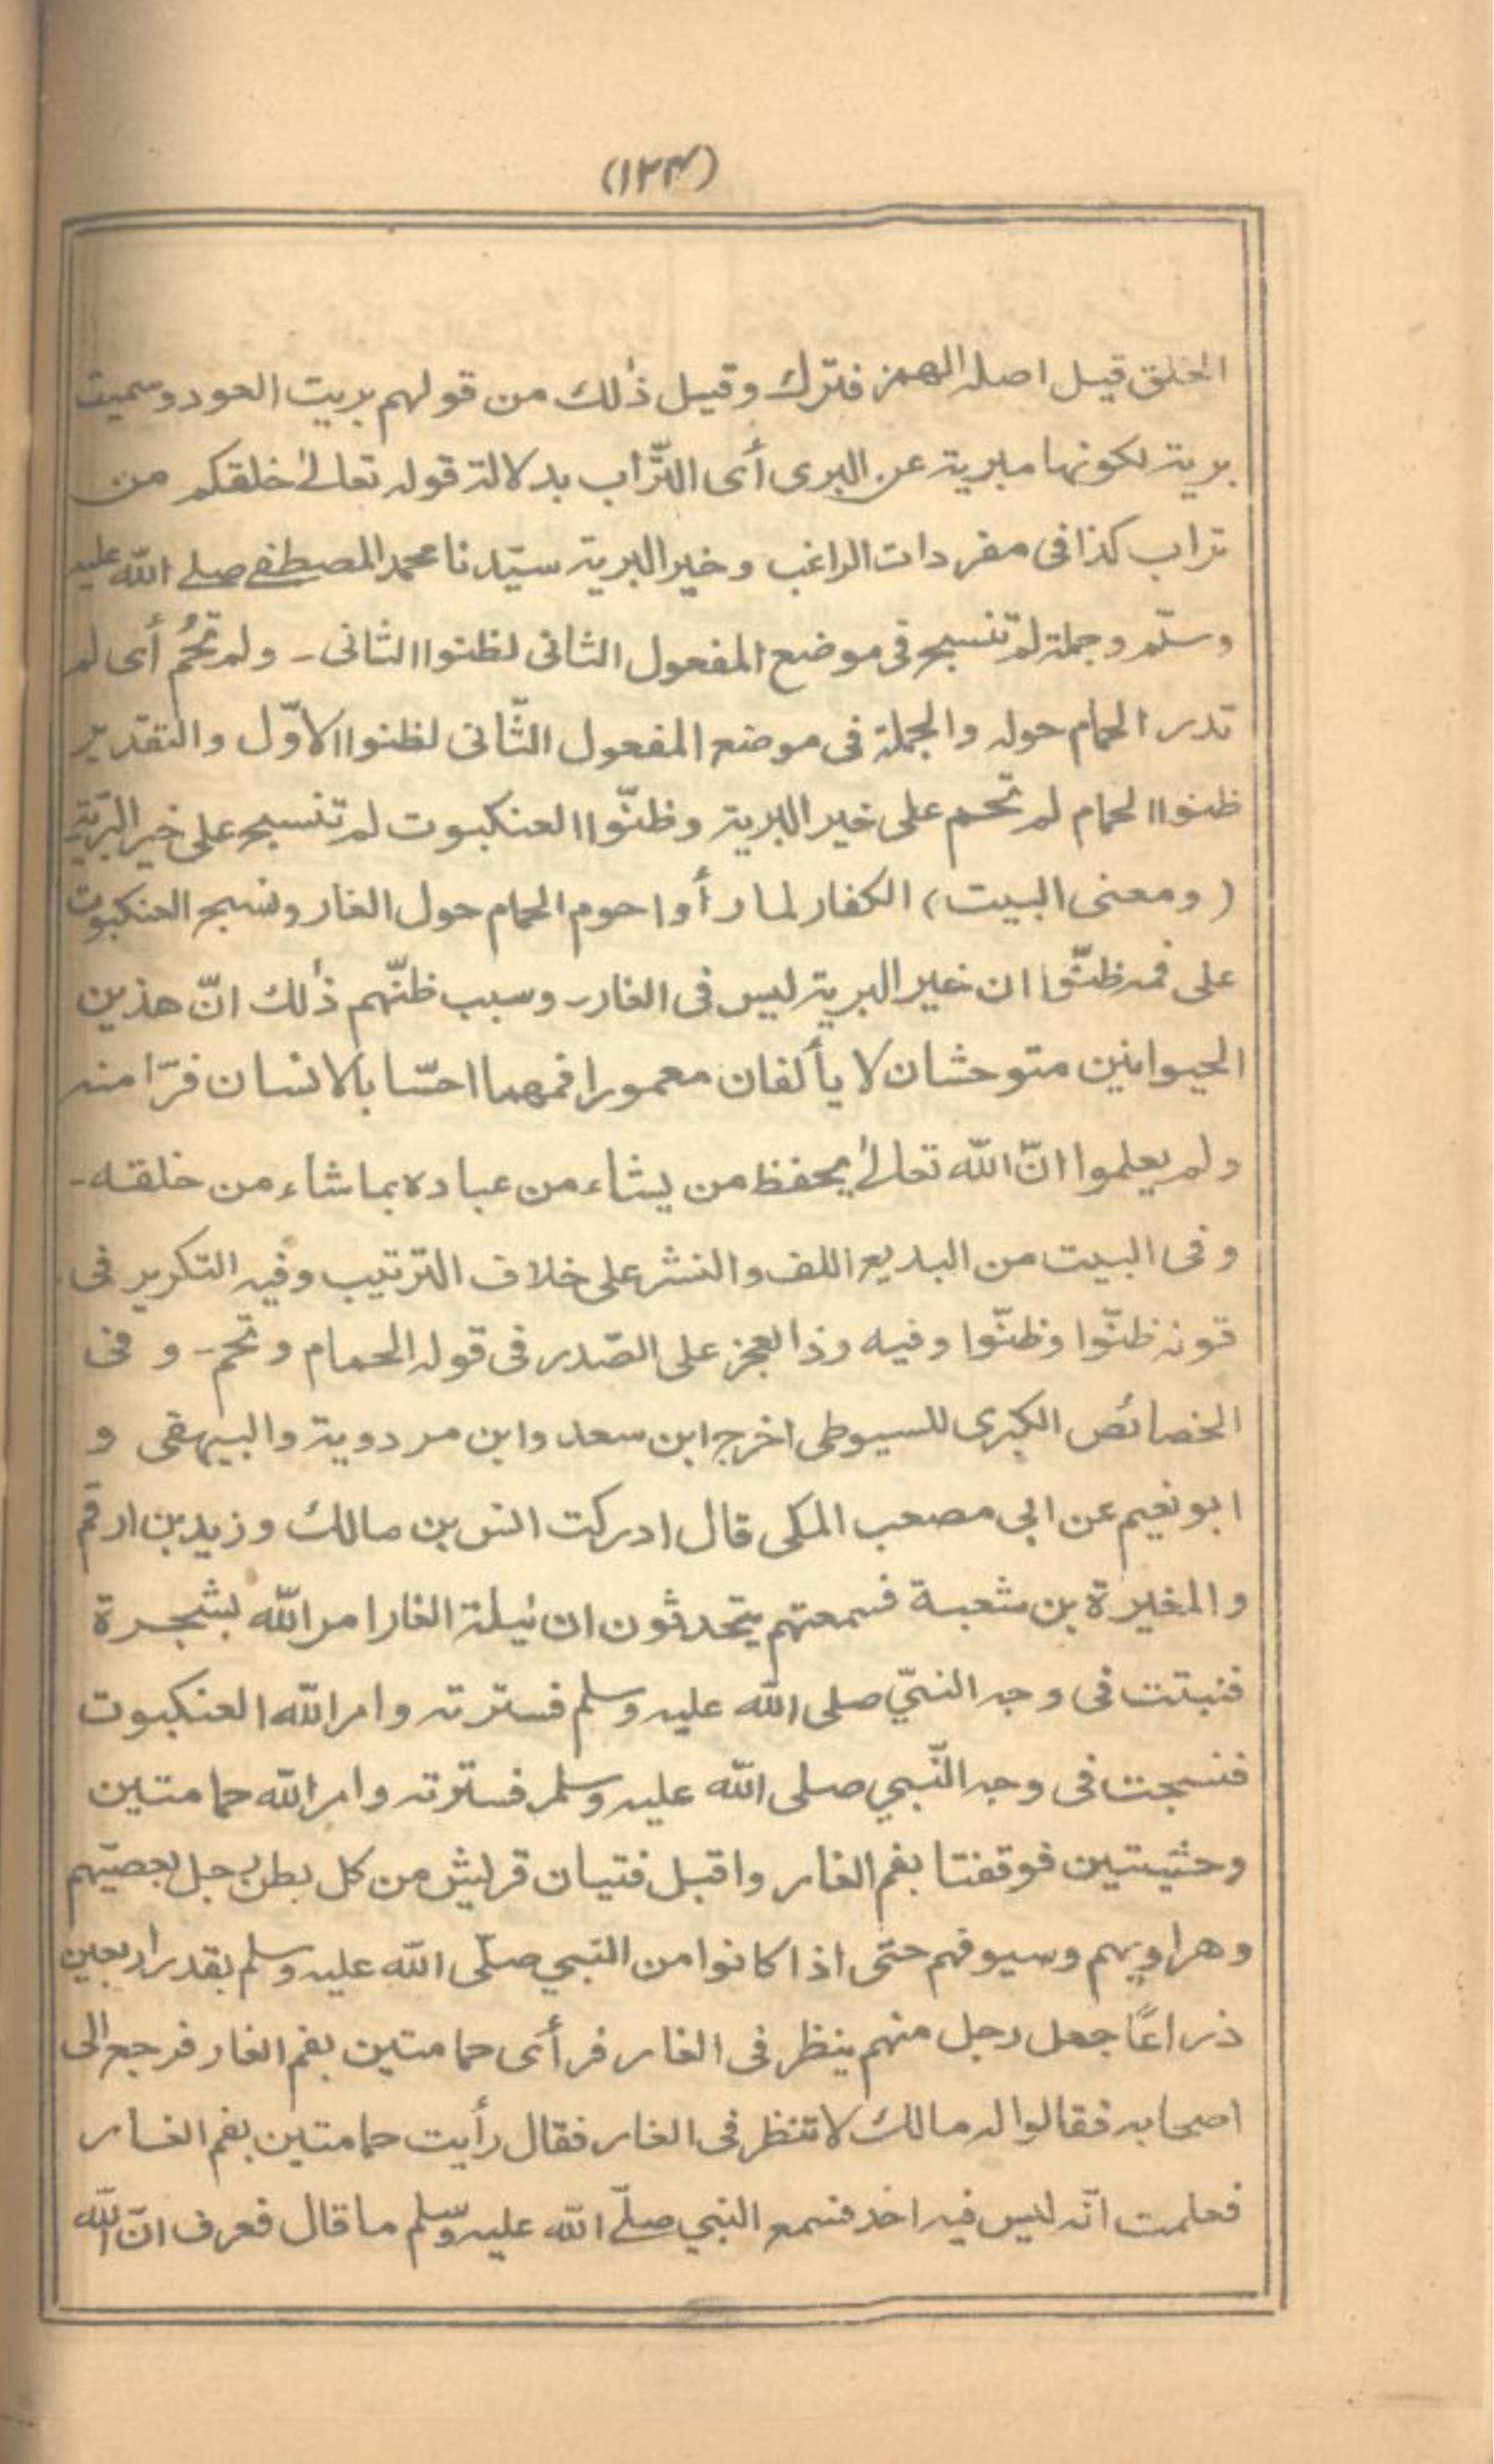 (١٢٣)
الخلق قيل اصله الهمز فترك وقيل ذٰلك من قولهم بريت العود وسميت
برية لكونها مبرية عن البرى أى التّراب بدلالة قوله تعالىٰ خلقكم من
تراب كذا فى مفردات الراغب وخير البرية سيّدنا محمد المصطفے صلے الله عليه
وسلّم وجملة لم تنسج فى موضع المفعول الثانى لظنوا الثانى - ولم تحُم أى لم
تدر الحمام حوله والجملة فى موضع المفعول الثّانى لظنوا الاوّل والتقدير
ظنوا الحمام لم تحم على خير البرية وظنّوا العنكبوت لم تنسج على خير البريّة
(ومعنى البيت) الكفار لما رأوا حوم الحمام حول الغار ونسج العنكبوت
على فمه ظنّوا ان خير البرية ليس فى الغار - وسبب ظنّهم ذٰلك انّ هذين
الحيوانين متوحشان لا يألفان معمورا فمهما احسّا بالانسان فرّا منه
ولم يعلموا انّ الله تعالىٰ يحفظ من يشاء من عباده بما شاء من خلقه -
وفى البيت من البديع اللف والنشر على خلاف الترتيب وفيه التكرير فى
قوله ظنّوا وظنّوا وفيه رد العجز على الصّدر فى قوله الحمام وتحم - و فى
الخصائص الكبرى للسيوطى اخرج ابن سعد وابن مردوية والبيهقى و
ابو نعيم عن ابى مصعب المكى قال ادركت انس بن مالك وزيد بن ارقم
والمغيرة بن شعبة فسمعتهم يتحدثون ان ليلة الغار امر الله بشجرة
فنبتت فى وجه النبيّ صلى الله عليه وسلم فسترته وامر الله العنكبوت
فنسجت فى وجه النّبي صلى الله عليه وسلم فسترته وامر الله حمامتين
وحشيتين فوقفتا بفم الغار واقبل فتيان قريش من كل بطن رجل بعصيّهم
وهراويهم وسيوفهم حتى اذا كانوا من النبي صلّى الله عليه وسلم بقدر اربعين
ذراعًا جعل رجل منهم ينظر فى الغار فرأى حمامتين بفم الغار فرجع الى
اصحابه فقالوا له مالك لا تنظر فى الغار فقال رأيت حمامتين بفم الغار
فعلمت انّه ليس فيه احد فسمع النبي صلّے الله عليه وسلّم ما قال فعرف انّ الله